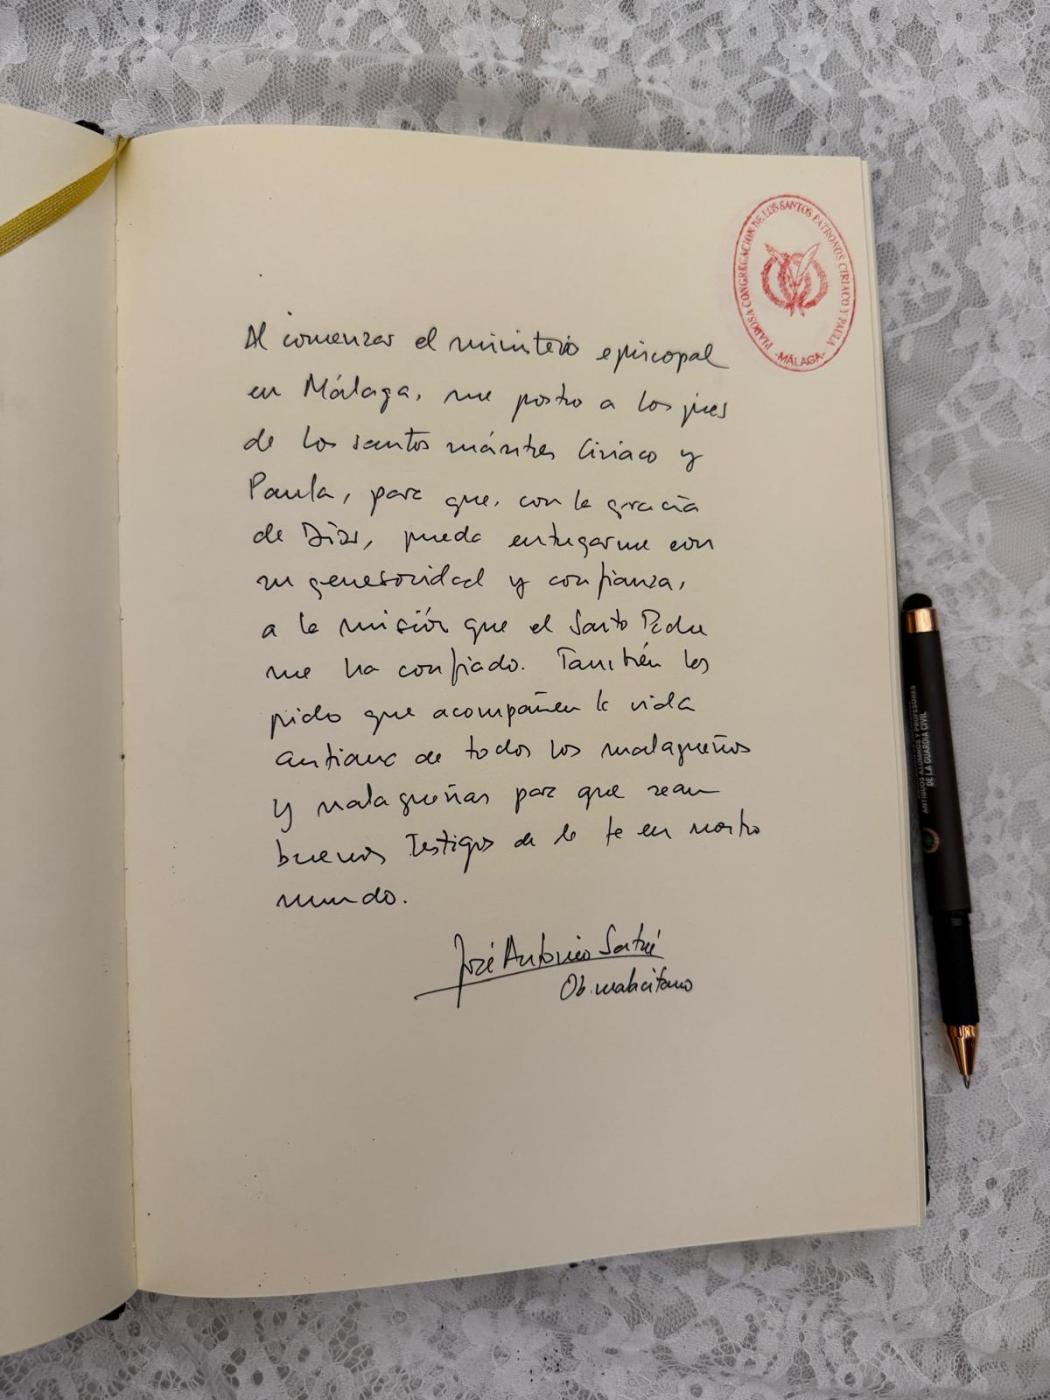 PIADOSA CONGREGACIÓN DE LOS SANTOS PATRONOS CIRIACO Y PAULA
-MÁLAGA-
Al comenzar el ministerio episcopal
en Málaga, me postro a los pies
de los santos mártires Ciriaco y
Paula, para que, con la gracia
de Dios, pueda entregarme con
su generosidad y confianza,
a la misión que el Santo Padre
me ha confiado. También les
pido que acompañen la vida
cristiana de todos los malagueños
y malagueñas para que sean
buenos testigos de la fe en nuestro
mundo.
José Antonio Satué
Ob. malacitano
ANTIGUOS ALUMNOS Y PROFESORES
DE LA GUARDIA CIVIL